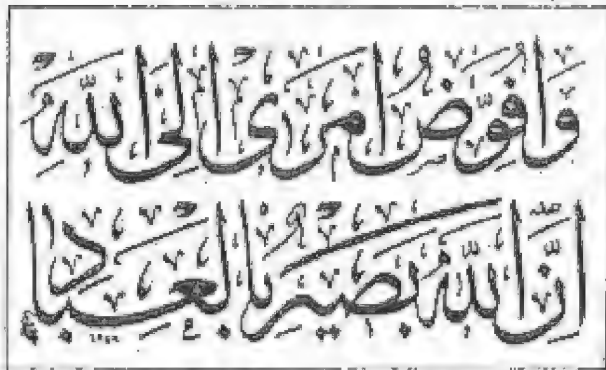 وَأُفَوِّضُ أَمْرِي إِلَى اللَّهِ
إِنَّ اللَّهَ بَصِيرٌ بِالْعِبَادِ